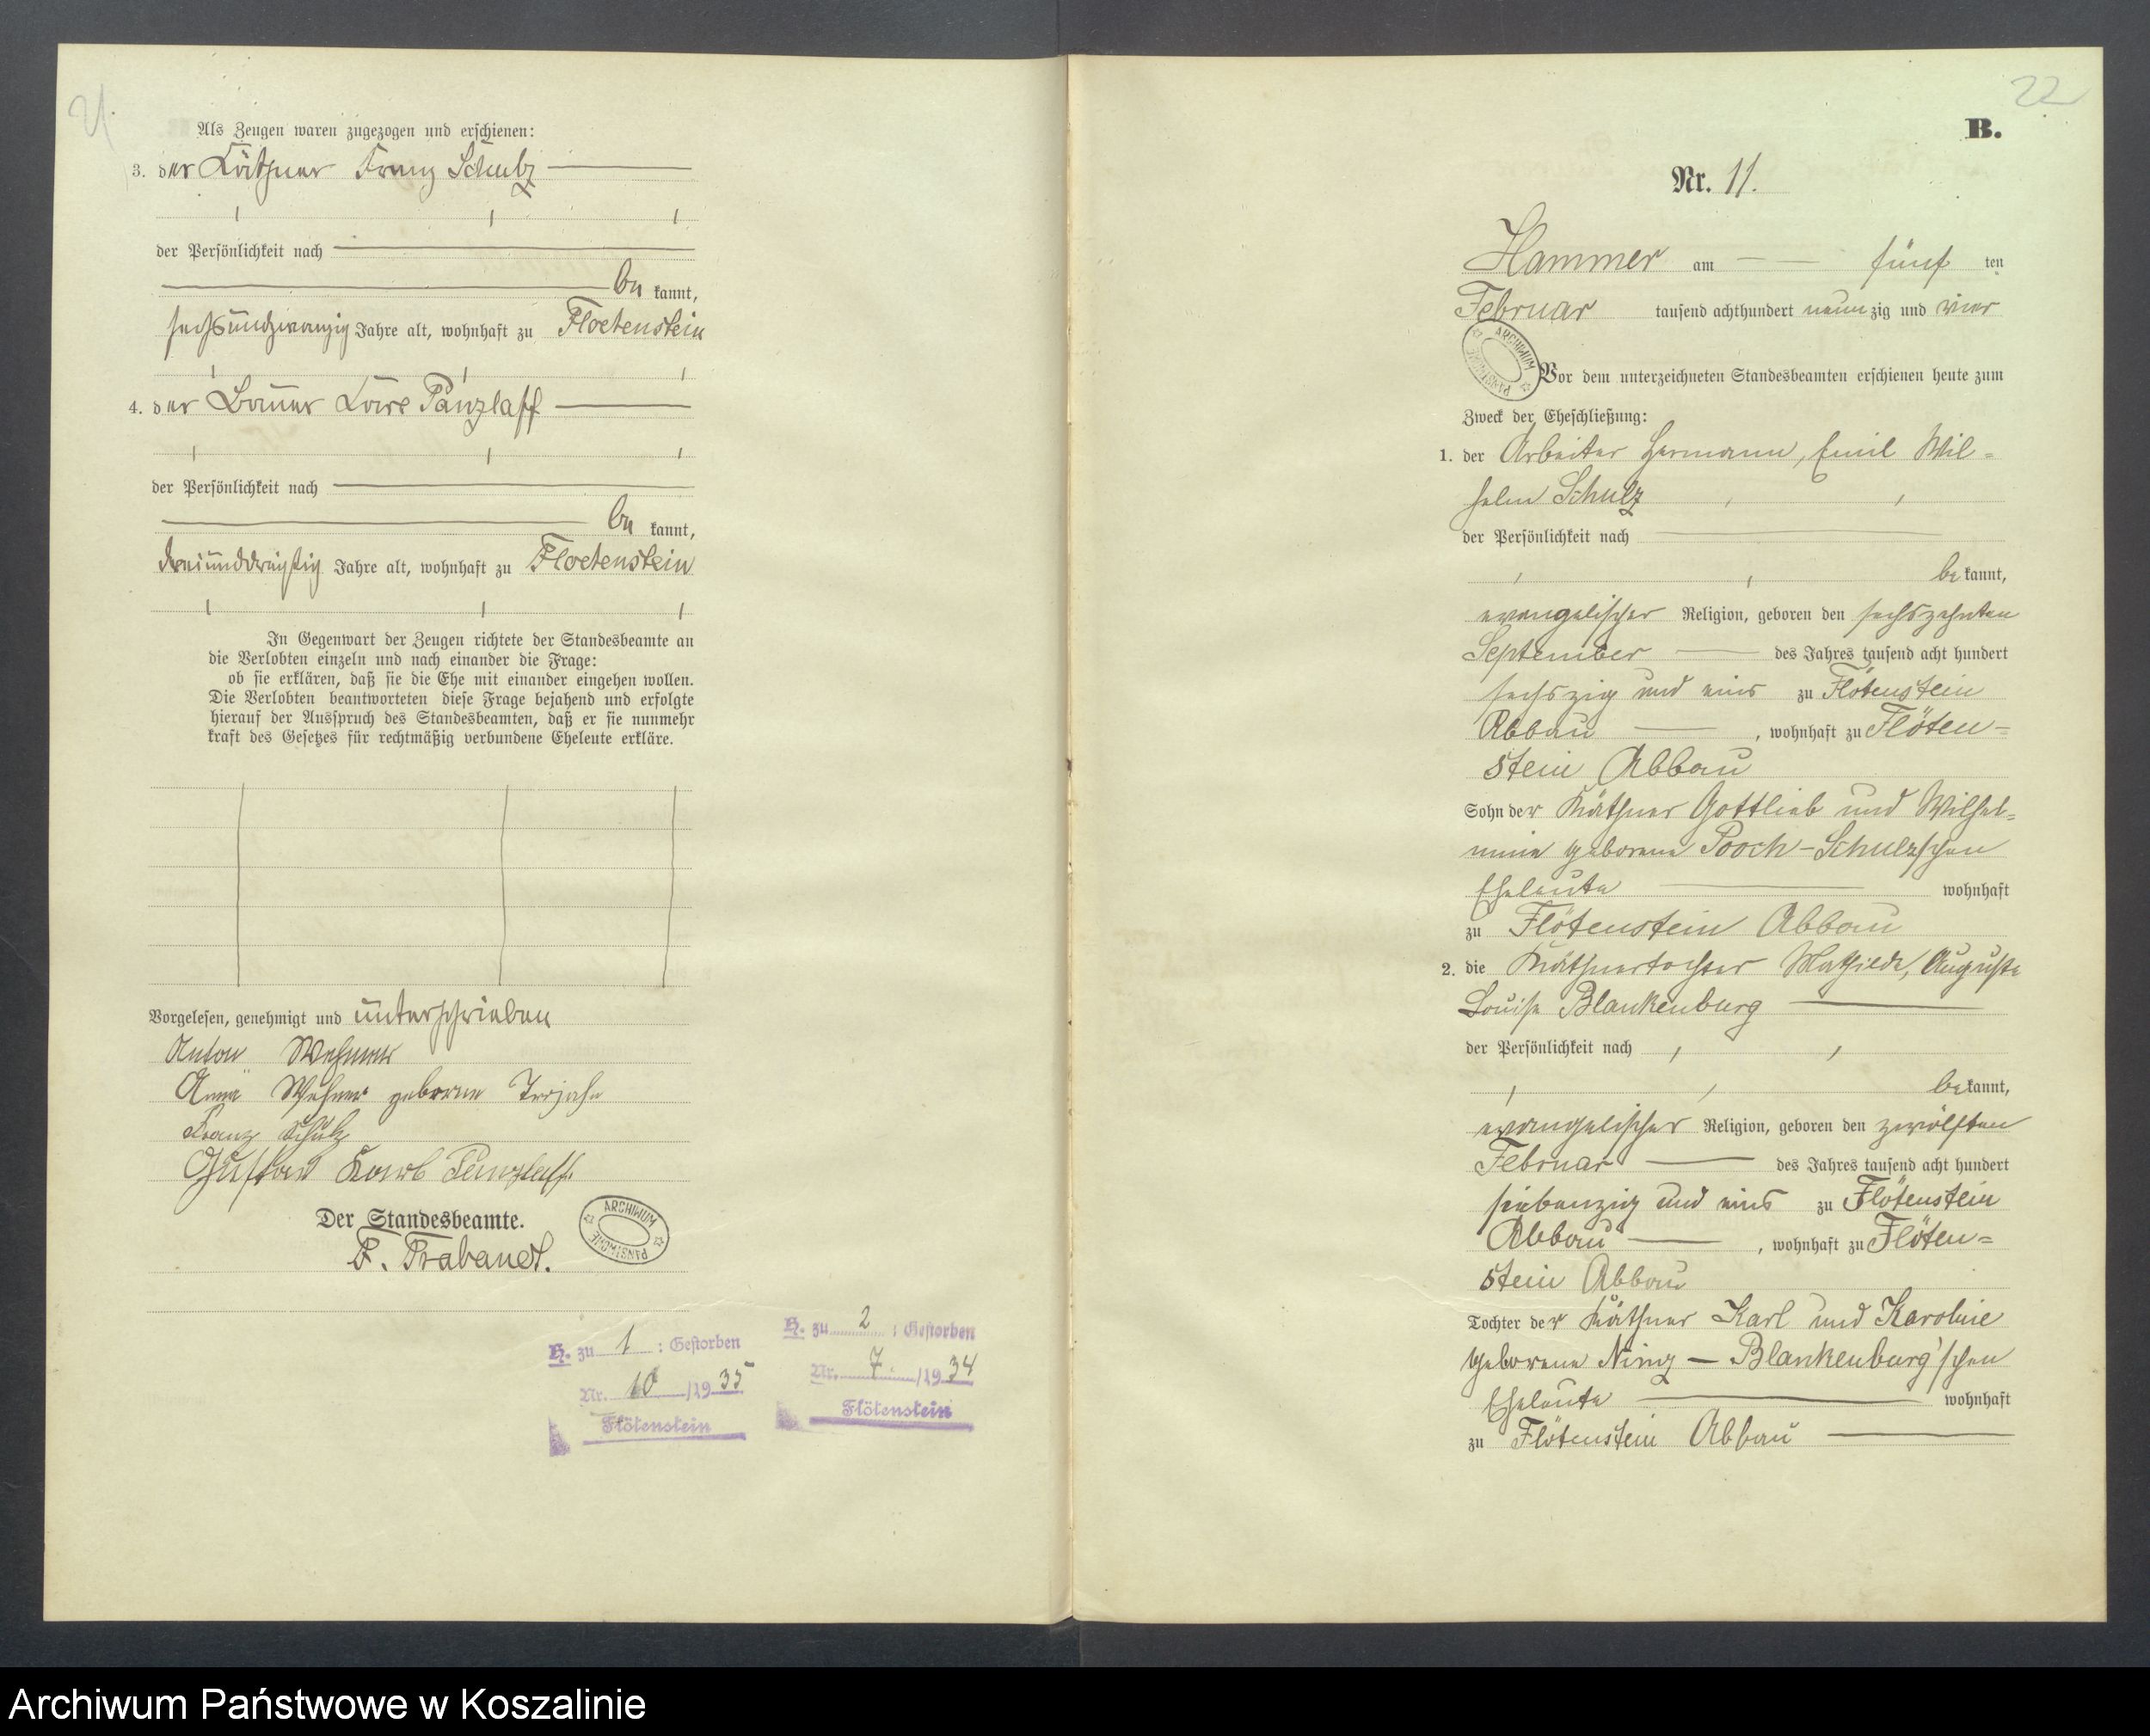 Als Zeugen waren zugezogen und erschienen:
3. der Käthner Franz Schulz
der Persönlichkeit nach
be kannt,
sechsundzwanzig Jahre alt, wohnhaft zu Floetenstein
4. der Bauer Karl Panzlaff
der Persönlichkeit nach
be kannt,
dreiunddreißig Jahre alt, wohnhaft zu Floetenstein
In Gegenwart der Zeugen richtete der Standesbeamte an
die Verlobten einzeln und nach einander die Frage:
ob sie erklären, daß sie die Ehe mit einander eingehen wollen.
Die Verlobten beantworteten diese Frage bejahend und erfolgte
hierauf der Ausspruch des Standesbeamten, daß er sie nunmehr
kraft des Gesetzes für rechtmäßig verbundene Eheleute erkläre.
Vorgelesen, genehmigt und unterschrieben
Anton Wehner
Anna Wehner geborne
Franz Schulz
Gustav Karl Panzlaff
Der Standesbeamte.
F. Trabandt.
ARCHIWUM PAŃSTWOWE
H. zu 1 : Gestorben
Nr. 10 /1935
Flötenstein
H. zu 2 : Gestorben
Nr. 7 /1934
Flötenstein
22
B.
Nr. 11.
Hammer am fünf ten
Februar tausend achthundert neunzig und vier
ARCHIWUM PAŃSTWOWE
Vor dem unterzeichneten Standesbeamten erschienen heute zum
Zweck der Eheschließung:
1. der Arbeiter Hermann, Emil Wil=
helm Schulz
der Persönlichkeit nach
be kannt,
evangelischer Religion, geboren den sechszehnten
September des Jahres tausend acht hundert
sechszig und eins zu Flötenstein
Abbau , wohnhaft zu Flöten=
stein Abbau
Sohn der Käthner Gottlieb und Wilhel=
mine geborene Pooch-Schulzschen
Eheleute wohnhaft
zu Flötenstein Abbau
2. die Käthnertochter Mathilde, Auguste
Louise Blankenburg
der Persönlichkeit nach
be kannt,
evangelischer Religion, geboren den zwölften
Februar des Jahres tausend acht hundert
siebenzig und eins zu Flötenstein
Abbau , wohnhaft zu Flöten=
stein Abbau
Tochter der Käthner Karl und Karoline
geborene Ninz - Blankenburg'schen
Eheleute wohnhaft
zu Flötenstein Abbau
Archiwum Państwowe w Koszalinie